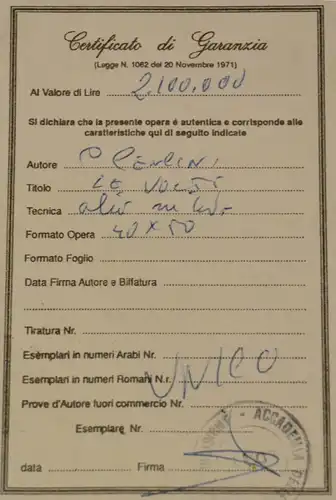 Certificato di Garanzia
(Legge N. 1062 del 20 Novembre 1971)
Al Valore di Lire 2.100.000
Si dichiara che la presente opera é autentica e corrisponde alle
caratteristiche qui di seguito indicate
Autore
Titolo LE
Tecnica olio su
Formato Opera 40 x 50
Formato Foglio
Data Firma Autore e Biffatura
Tiratura Nr.
Esemplari in numeri Arabi Nr.
Esemplari in numeri Romani N.r.
UNICO
Prove d'Autore fuori commercio Nr.
Esemplare Nr.
data Firma
ACCADEMIA